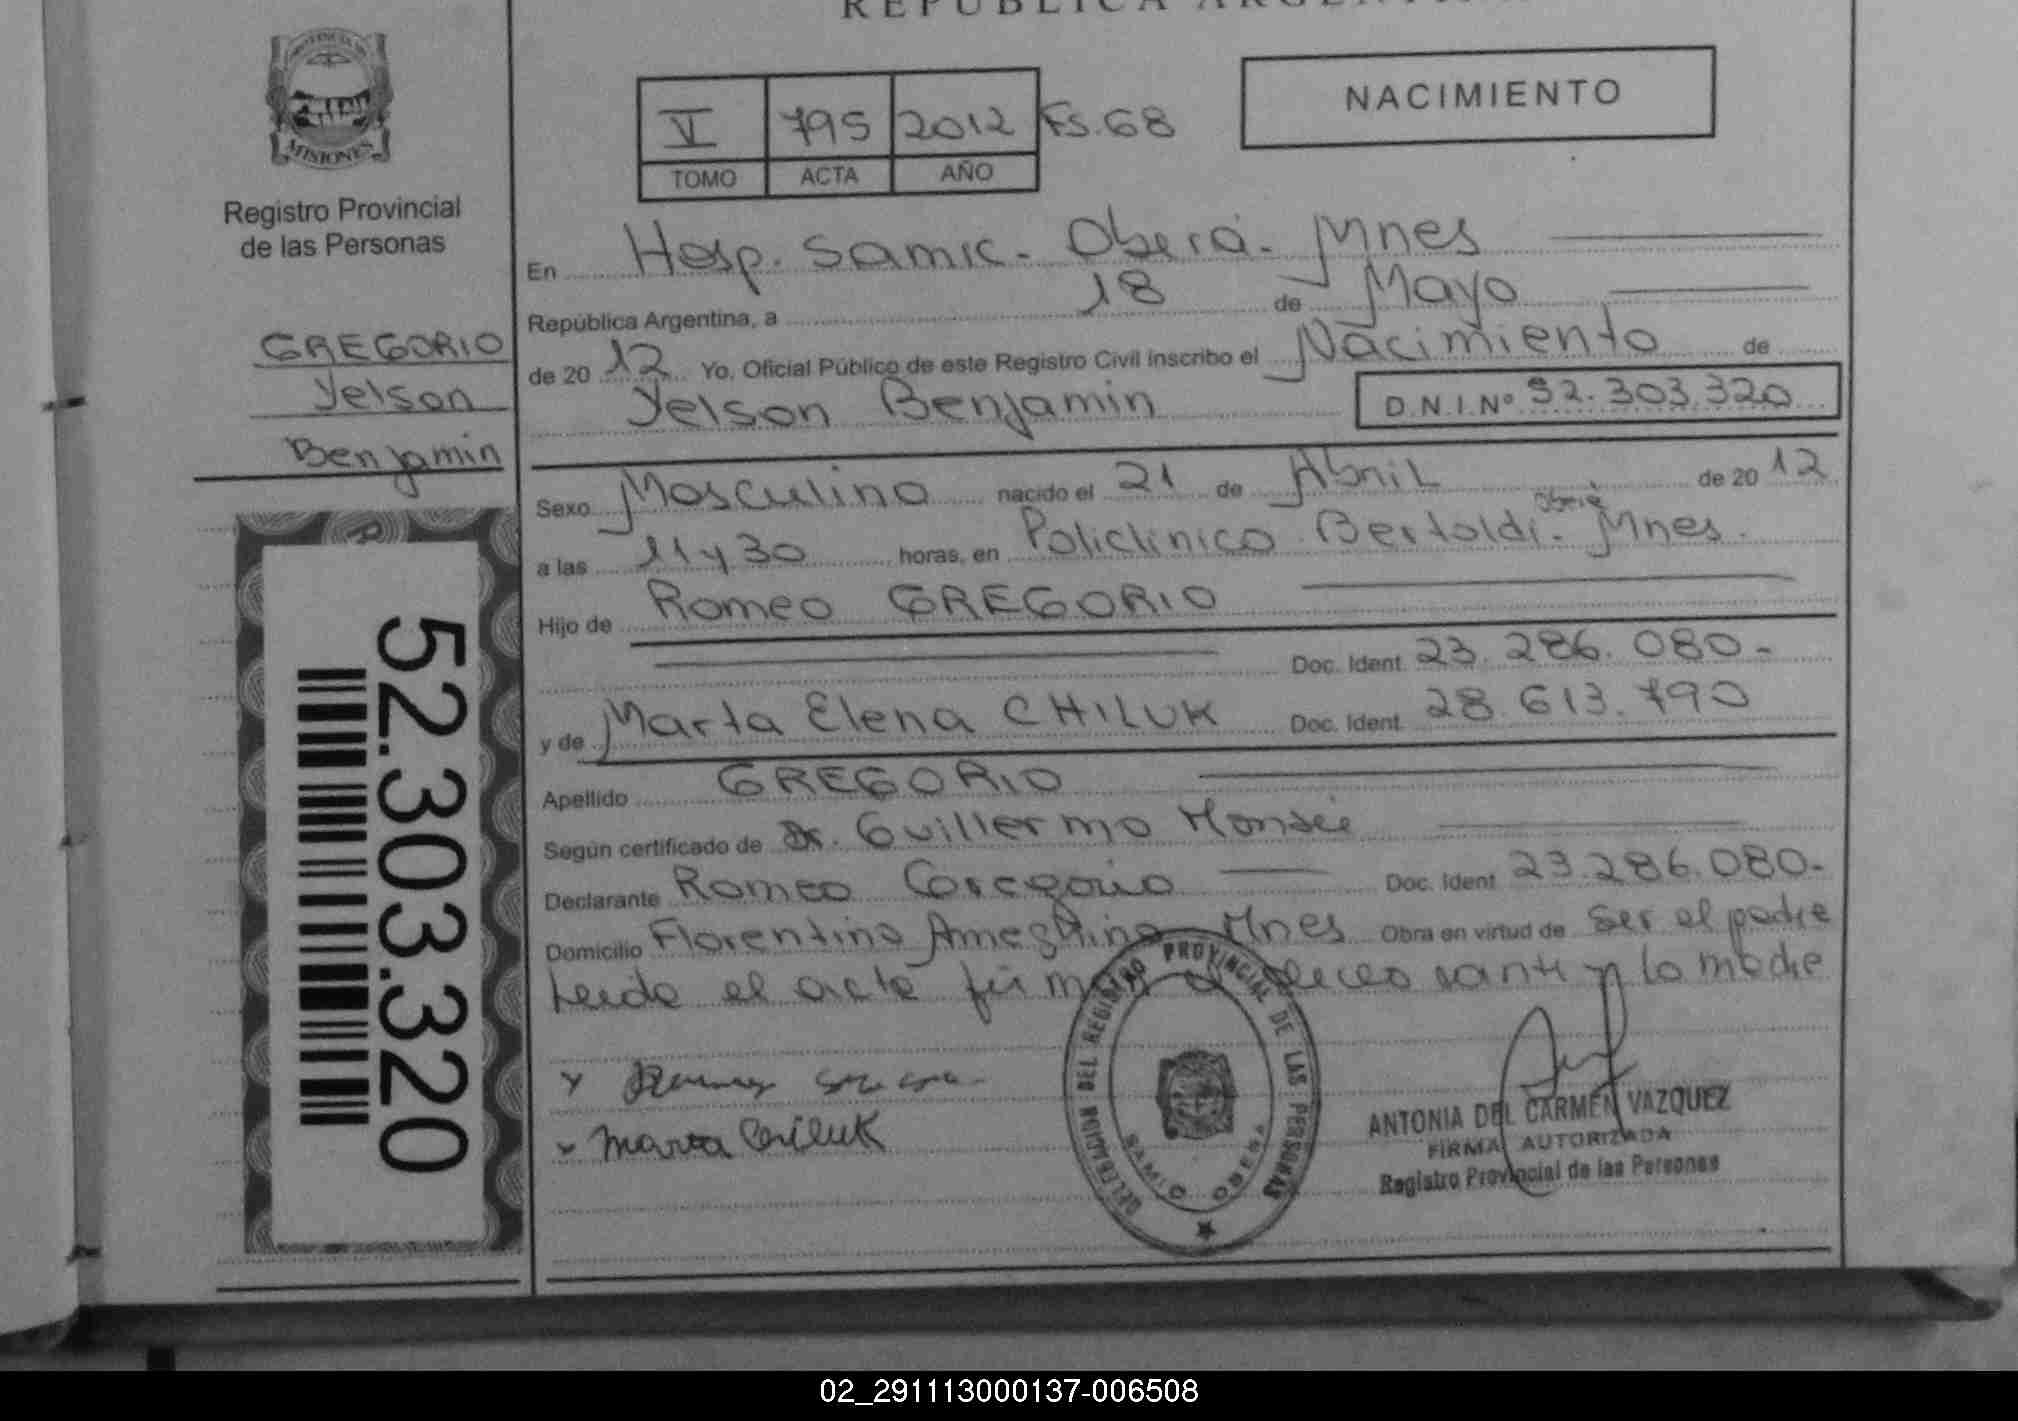 REPUBLICA ARGENTINA
PROVINCIA DE
MISIONES
Registro Provincial
de las Personas
GREGORIO
Yelson
Benjamin
52.303.320
V 795 2012 Fs.68
TOMO ACTA AÑO
NACIMIENTO
En Hosp. Samic. Oberá. Mnes
República Argentina, a 18 de Mayo
de 2012 Yo, Oficial Público de este Registro Civil inscribo el Nacimiento de
Yelson Benjamin D.N.I.Nº 52.303.320
Sexo Masculino nacido el 21 de Abril de 2012
a las 11 y 30 horas, en Policlinico Bertoldi. Oberá Mnes.
Hijo de Romeo GREGORIO
Doc. Ident. 23.286.080-
y de Marta Elena CHILUK Doc. Ident. 28.613.790
Apellido GREGORIO
Según certificado de Dr. Guillermo
Declarante Romeo Gregorio Doc. Ident 23.286.080-
Domicilio Florentino Ameghino Mnes Obra en virtud de Ser el padre
Leida el acta firman el declarante y la madre
Marta Chiluk
DELEGACION DEL REGISTRO PROVINCIAL DE LAS PERSONAS
SAMIC OBERA
ANTONIA DEL CARMEN VAZQUEZ
FIRMA AUTORIZADA
Registro Provincial de las Personas
02_291113000137-006508